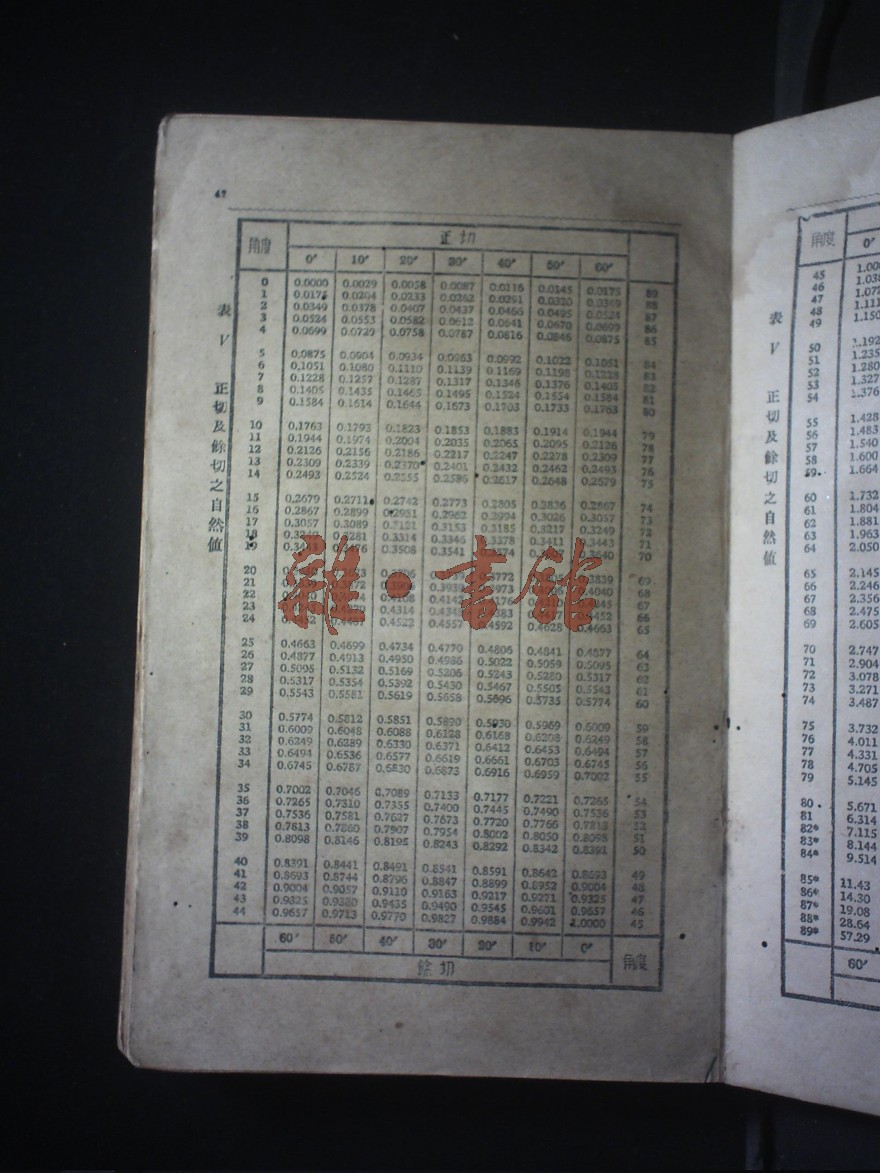 47
表 V 正切及餘切之自然値
角度 正切
0′ 10′ 20′ 30′ 40′ 50′ 60′
0 0.0000 0.0029 0.0058 0.0087 0.0116 0.0145 0.0175 89
1 0.0175 0.0204 0.0233 0.0262 0.0291 0.0320 0.0349 88
2 0.0349 0.0378 0.0407 0.0437 0.0466 0.0495 0.0524 87
3 0.0524 0.0553 0.0582 0.0612 0.0641 0.0670 0.0699 86
4 0.0699 0.0729 0.0758 0.0787 0.0816 0.0846 0.0875 85
5 0.0875 0.0904 0.0934 0.0963 0.0992 0.1022 0.1051 84
6 0.1051 0.1080 0.1110 0.1139 0.1169 0.1198 0.1228 83
7 0.1228 0.1257 0.1287 0.1317 0.1346 0.1376 0.1405 82
8 0.1405 0.1435 0.1465 0.1495 0.1524 0.1554 0.1584 81
9 0.1584 0.1614 0.1644 0.1673 0.1703 0.1733 0.1763 80
10 0.1763 0.1793 0.1823 0.1853 0.1883 0.1914 0.1944 79
11 0.1944 0.1974 0.2004 0.2035 0.2065 0.2095 0.2126 78
12 0.2126 0.2156 0.2186 0.2217 0.2247 0.2278 0.2309 77
13 0.2309 0.2339 0.2370 0.2401 0.2432 0.2462 0.2493 76
14 0.2493 0.2524 0.2555 0.2586 0.2617 0.2648 0.2679 75
15 0.2679 0.2711 0.2742 0.2773 0.2805 0.2836 0.2867 74
16 0.2867 0.2899 0.2931 0.2962 0.2994 0.3026 0.3057 73
17 0.3057 0.3089 0.3121 0.3153 0.3185 0.3217 0.3249 72
18 0.3249 0.3281 0.3314 0.3346 0.3378 0.3411 0.3443 71
19 0.3476 0.3508 0.3541 0.3640 70
20 69
21 68
22 67
23 0.4314 66
24 0.4522 0.4557 0.4592 0.4628 0.4663 65
25 0.4663 0.4699 0.4734 0.4770 0.4806 0.4841 0.4877 64
26 0.4877 0.4913 0.4950 0.4986 0.5022 0.5059 0.5095 63
27 0.5095 0.5132 0.5169 0.5206 0.5243 0.5280 0.5317 62
28 0.5317 0.5354 0.5392 0.5430 0.5467 0.5505 0.5543 61
29 0.5543 0.5581 0.5619 0.5658 0.5696 0.5735 0.5774 60
30 0.5774 0.5812 0.5851 0.5890 0.5930 0.5969 0.6009 59
31 0.6009 0.6048 0.6088 0.6128 0.6168 0.6208 0.6249 58
32 0.6249 0.6289 0.6330 0.6371 0.6412 0.6453 0.6494 57
33 0.6494 0.6536 0.6577 0.6619 0.6661 0.6703 0.6745 56
34 0.6745 0.6787 0.6830 0.6873 0.6916 0.6959 0.7002 55
35 0.7002 0.7046 0.7089 0.7133 0.7177 0.7221 0.7265 54
36 0.7265 0.7310 0.7355 0.7400 0.7445 0.7490 0.7536 53
37 0.7536 0.7581 0.7627 0.7673 0.7720 0.7766 0.7813 52
38 0.7813 0.7860 0.7907 0.7954 0.8002 0.8050 0.8098 51
39 0.8098 0.8146 0.8195 0.8243 0.8292 0.8342 0.8391 50
40 0.8391 0.8441 0.8491 0.8541 0.8591 0.8642 0.8693 49
41 0.8693 0.8744 0.8796 0.8847 0.8899 0.8952 0.9004 48
42 0.9004 0.9057 0.9110 0.9163 0.9217 0.9271 0.9325 47
43 0.9325 0.9380 0.9435 0.9490 0.9545 0.9601 0.9657 46
44 0.9657 0.9713 0.9770 0.9827 0.9884 0.9942 1.0000 45
60′ 50′ 40′ 30′ 20′ 10′ 0′
餘切 角度
雜·書館
表 V 正切及餘切之自然値
角度 0′
45 1.00
46 1.03
47 1.07
48 1.11
49 1.150
50 1.192
51 1.235
52 1.280
53 1.327
54 1.376
55 1.428
56 1.483
57 1.540
58 1.600
59 1.664
60 1.732
61 1.804
62 1.881
63 1.963
64 2.050
65 2.145
66 2.246
67 2.356
68 2.475
69 2.605
70 2.747
71 2.904
72 3.078
73 3.271
74 3.487
75 3.732
76 4.011
77 4.331
78 4.705
79 5.145
80 5.671
81 6.314
82* 7.115
83* 8.144
84* 9.514
85* 11.43
86* 14.30
87* 19.08
88* 28.64
89* 57.29
60′